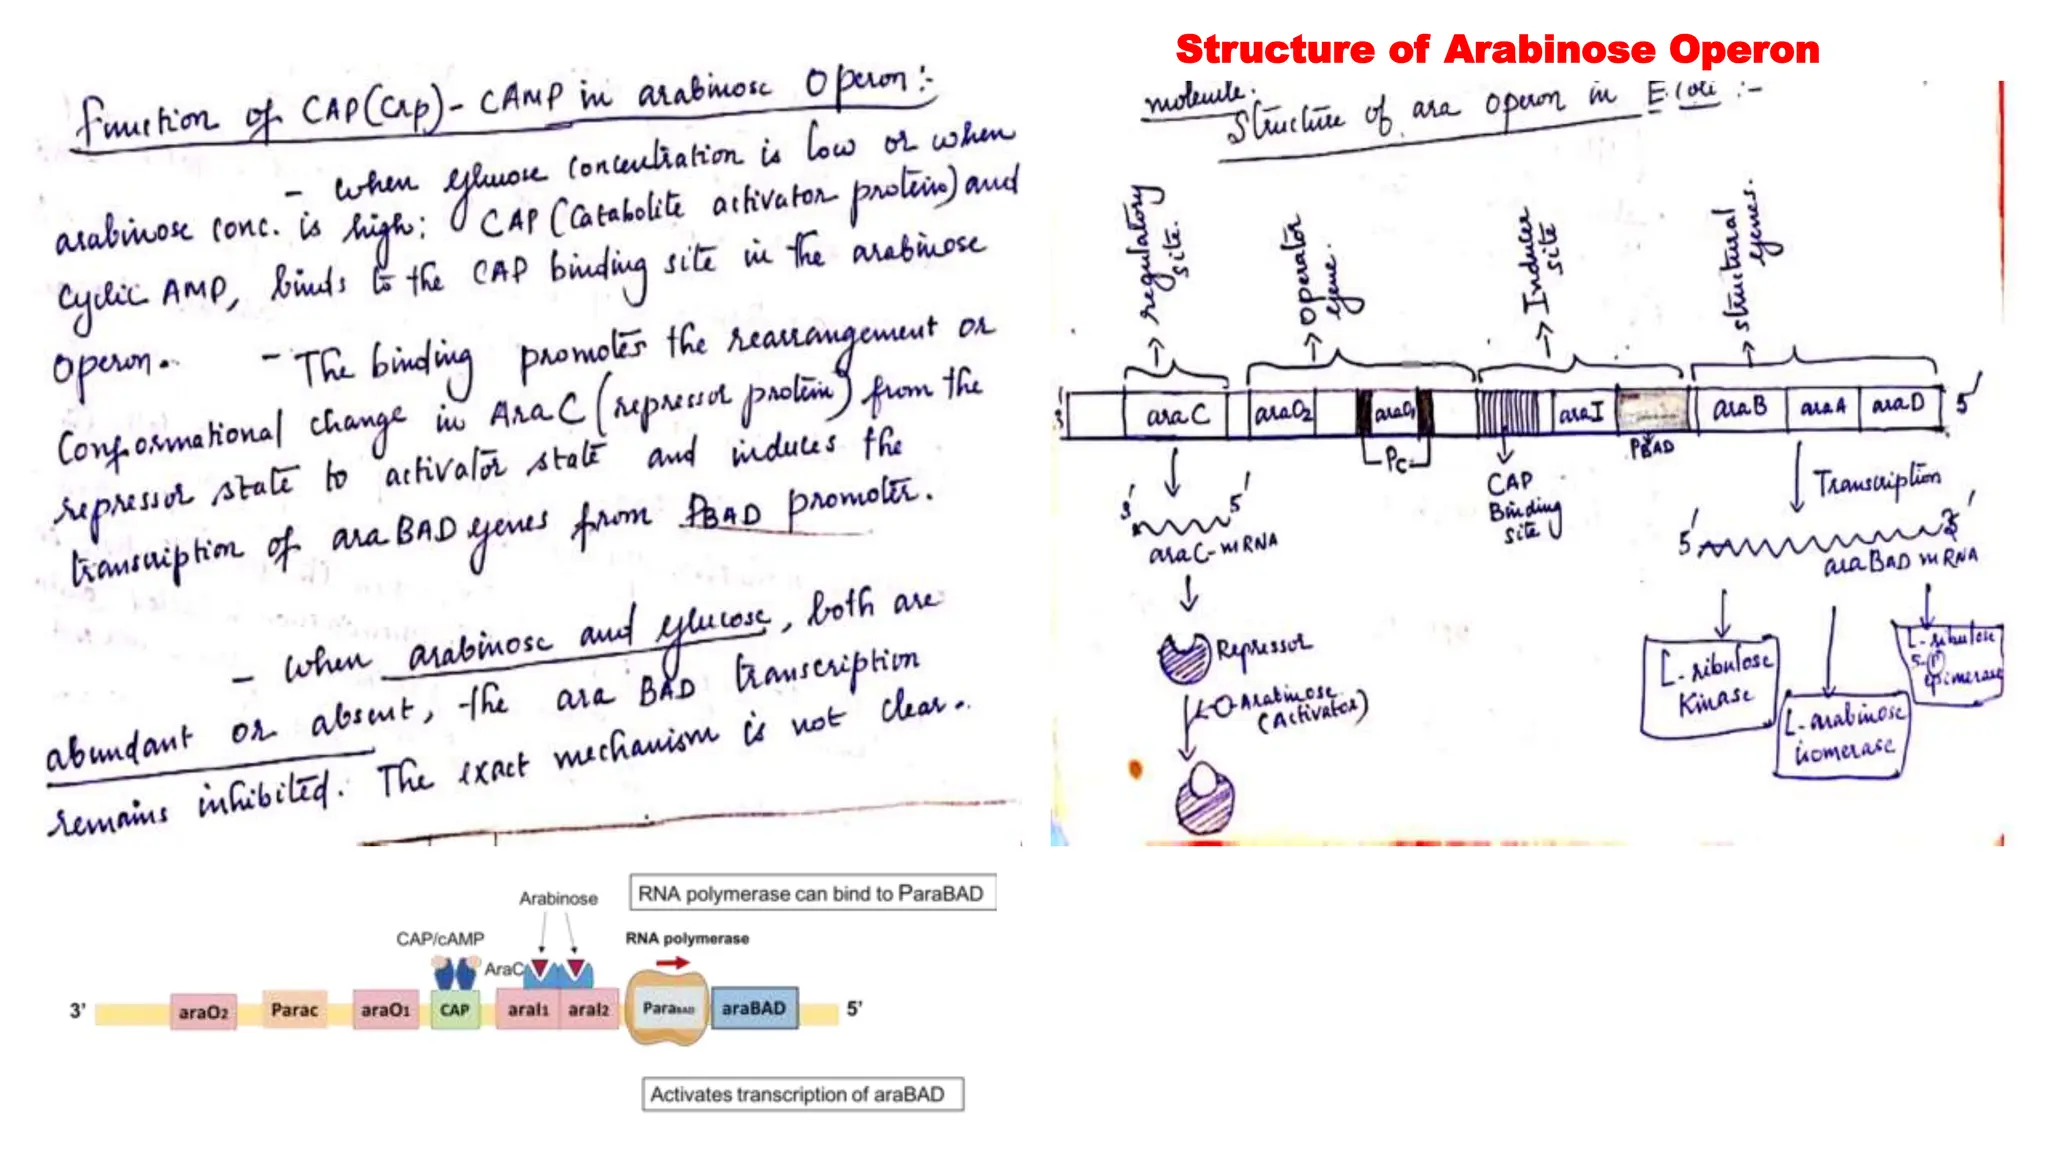 Structure of Arabinose Operon
Function of CAP(Crp)- CAMP in arabinose Operon:-
- When glucose concentration is low or when
arabinose conc. is high: CAP (Catabolite activator protein) and
Cyclic AMP, binds to the CAP binding site in the arabinose
operon.
- The binding promotes the rearrangement or
Conformational change in AraC (repressor protein) from the
repressor state to activator state and induces the
transcription of ara BAD genes from PBAD promoter.
- When arabinose and glucose, both are
abundant or absent, the ara BAD transcription
remains inhibited. The exact mechanism is not clear.
molecule.
Structure of ara operon in E.coli :-
regulatory site.
operator gene.
Inducer site
structural genes.
3'
araC
araO2
araO1
araI
araB
araA
araD
5'
Pc
CAP
Binding
site
PBAD
Transcription
3' 5'
araC-mRNA
5' 3'
araBAD mRNA
Repressor
Arabinose
(Activator)
L-ribulose
Kinase
L-arabinose
isomerase
L-ribulose
5-P
epimerase
Arabinose
RNA polymerase can bind to ParaBAD
CAP/cAMP
RNA polymerase
AraC
3'
araO2
Parac
araO1
CAP
araI1
araI2
ParaBAD
araBAD
5'
Activates transcription of araBAD